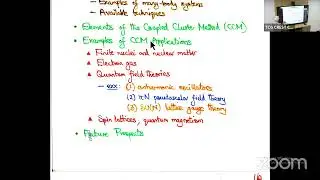 - Examples of many-body systems
- Available techniques
• Elements of the Coupled Cluster Method (CCM)
• Examples of CCM Applications
▲ Finite nuclei and nuclear matter
▲ Electron gas
▲ Quantum field theories
(1) anharmonic oscillators
(2) πN pseudoscalar field theory
(3) lattice gauge theory
▲ Spin lattices, quantum magnetism
• Future Prospects
zoom